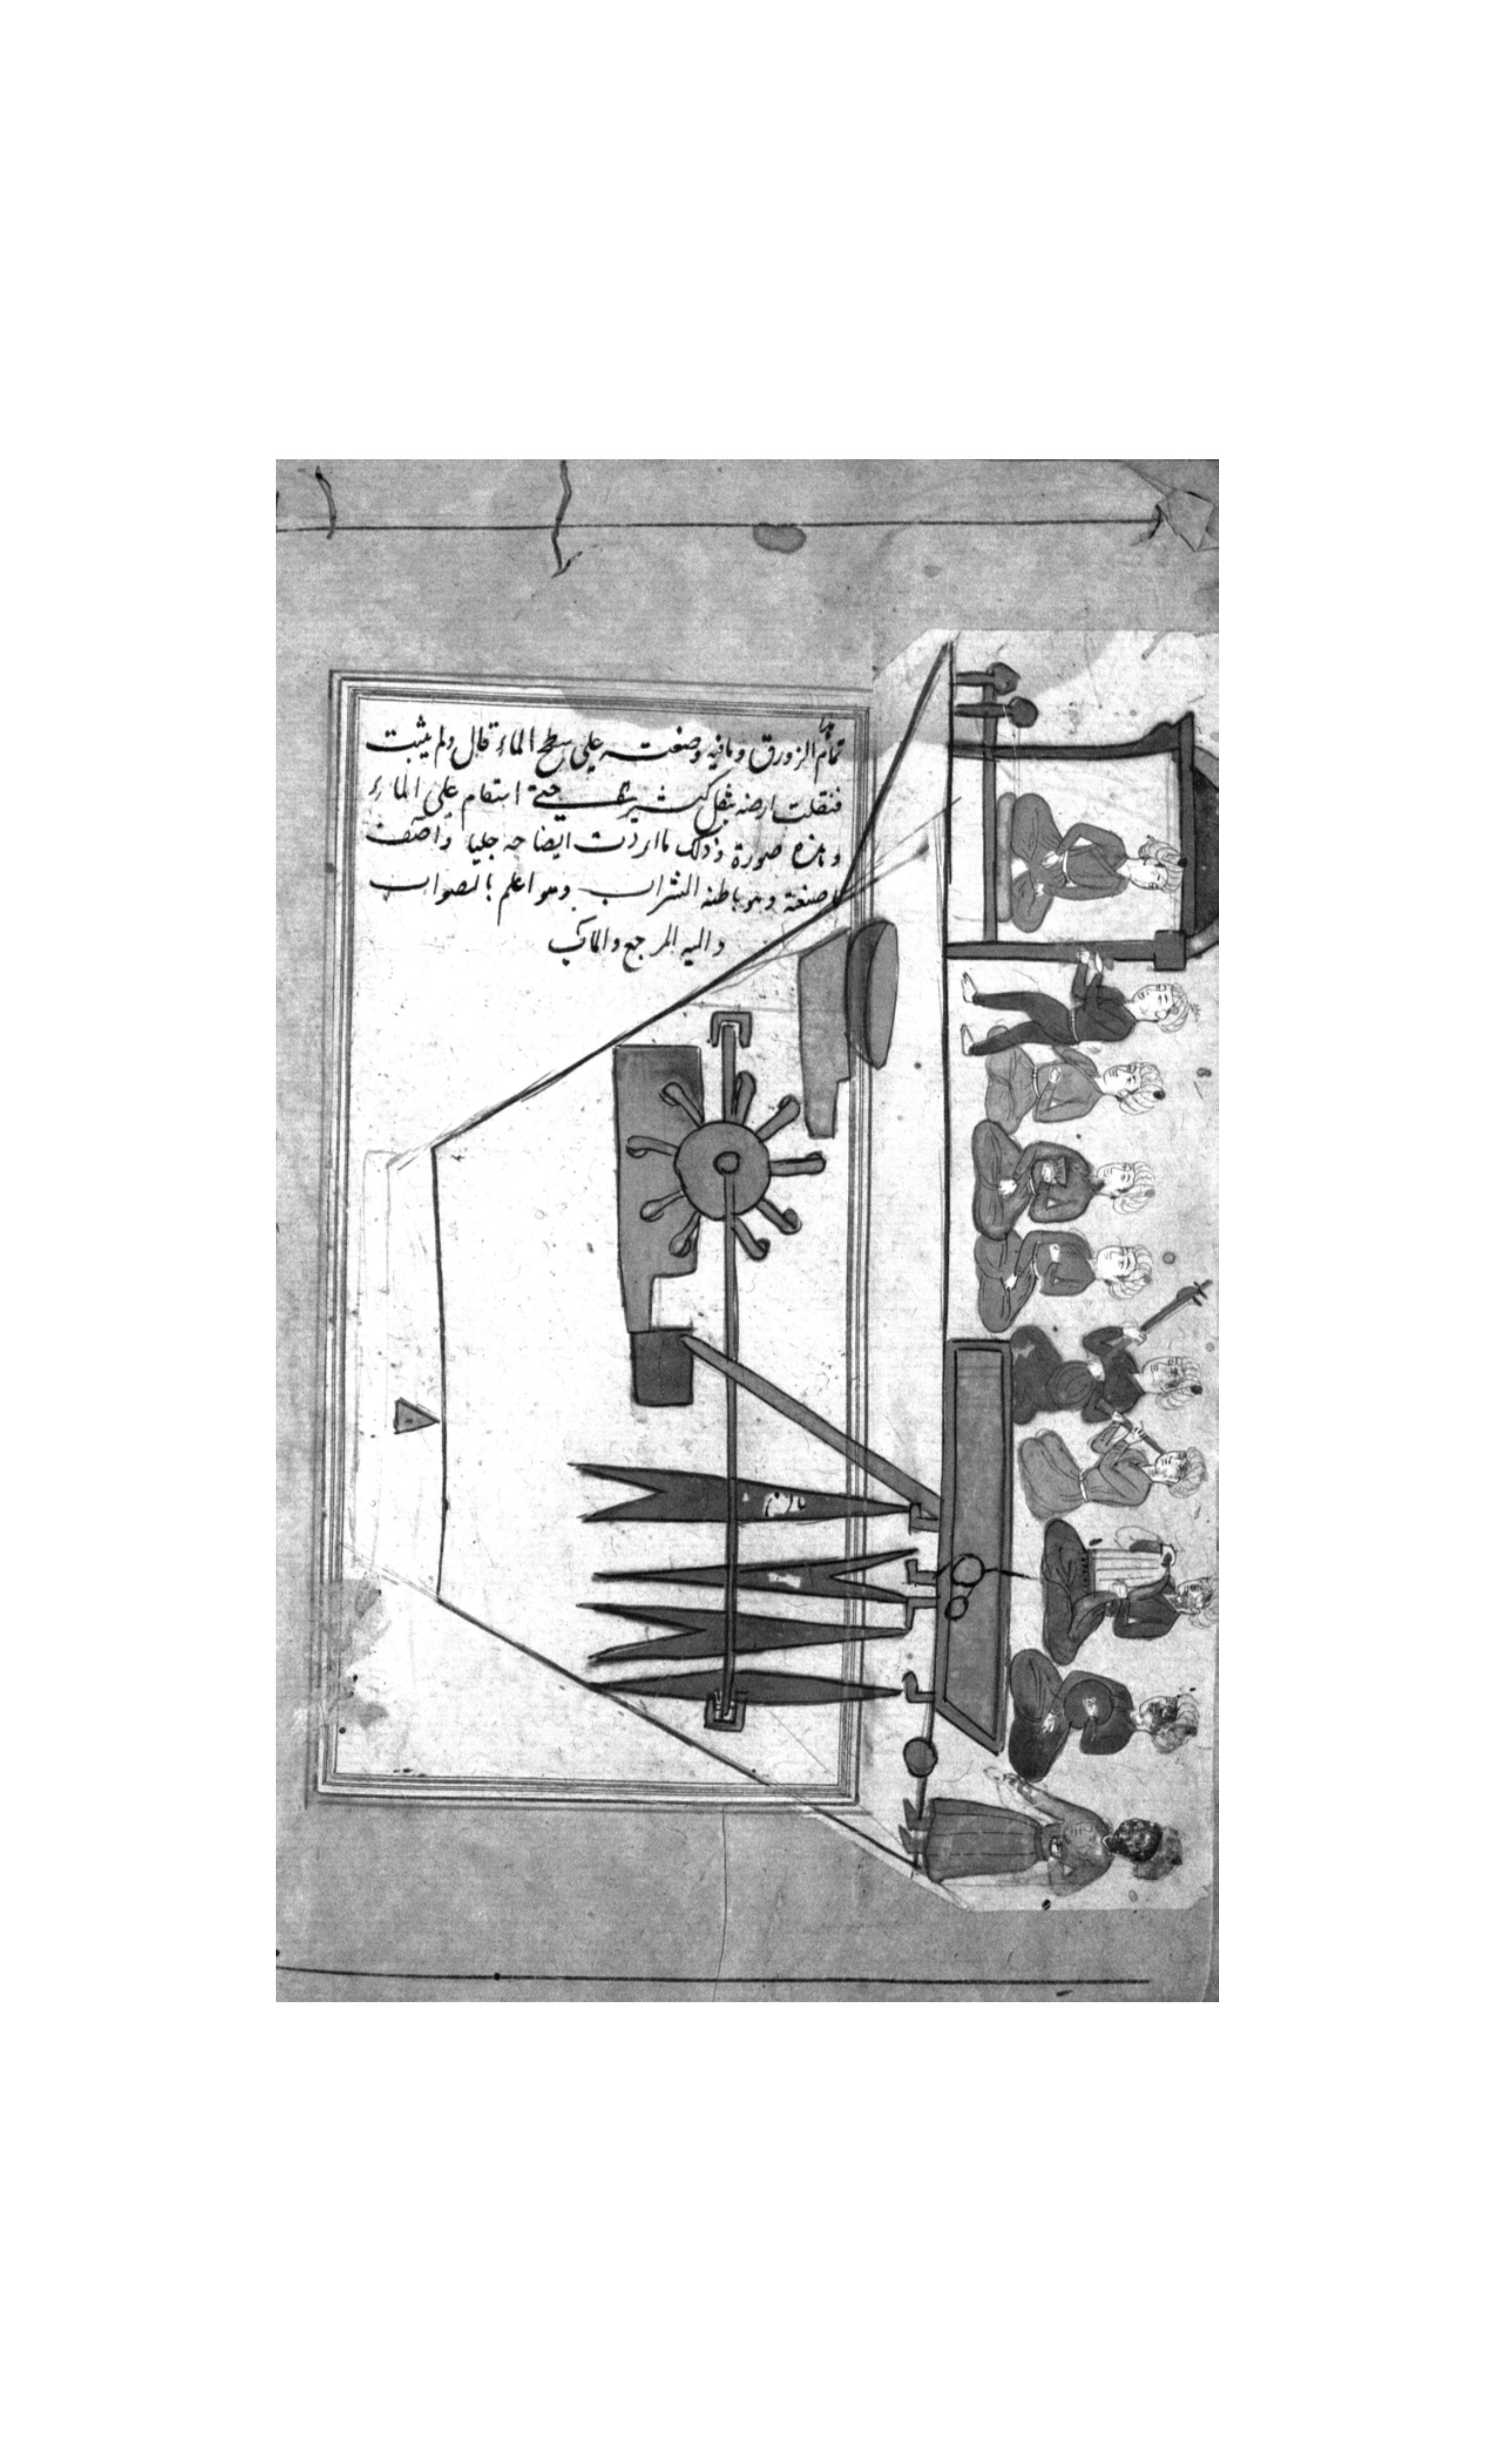 هذا
تمام الزورق وما فيه وضعته على سطح الماء قال ولم يثبت
فثقلت ارضه بثقل كثير حتى استقام على الماء
وهذه صورة ذلك ما اردت ايضاحه جليا واصف
صنعة وهو باطنه الشراب وهو اعلم بالصواب
واليه المرجع والمآب